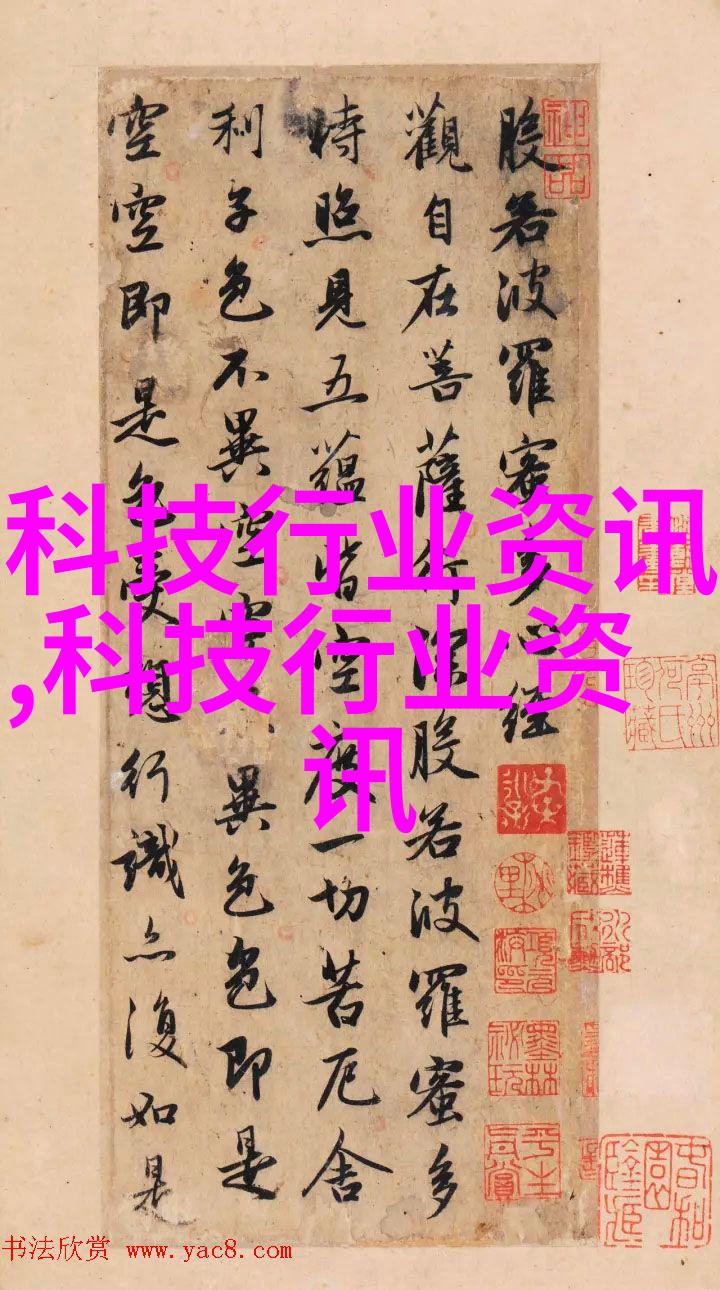 般若波羅蜜多心經
觀自在菩薩行深般若波羅蜜多
時照見五蘊皆空度一切苦厄舍
利子色不異空空不異色色即是
空空即是色受想行識亦復如是
科技行业资讯
,科技行业资
讯
神品
书法欣赏 www.yac8.com